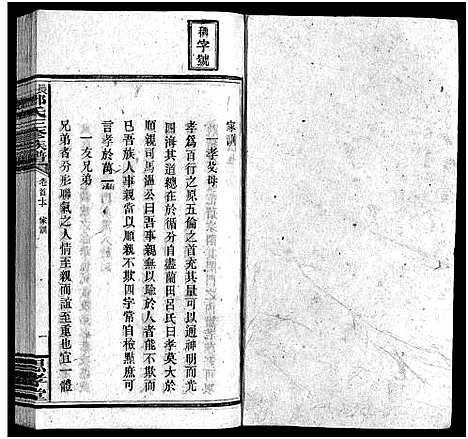 稱字號
家訓
一孝父母
孝爲百行之原五倫之首充其量可以通神明而光
四海其道總在於循分自盡藍田呂氏曰孝莫大於
順親司馬溫公曰吾事親無以踰於人者能不欺而
已吾族人事親當以順親不欺四字常自檢點庶可
言孝於萬一
一友兄弟
兄弟者分形聯氣之人情至親而誼至重也宜一體
氏三修族譜
卷首
家訓
一